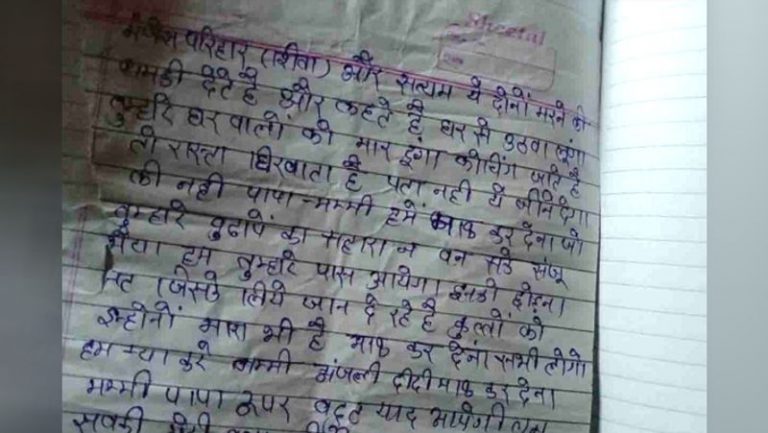 परिहार (शिवा) और सत्यम ये दोनों मरने की
धमकी देते है और कहते है घर से उठवा लूंगा
तुम्हारे घर वालों को मार दूंगा कोचिंग जाते है
तो रास्ता घिरवाता है पता नही ये जीने देगा
की नही पापा-मम्मी हमें माफ कर देना जो
तुम्हारे बुढापे का सहारा न बन सके संजू
भैया हम तुम्हारे पास आयेगा इनको छोड़ना
मत जिसके लिये जान दे रहे है कुत्तों को
इन्होनों मारा भी है माफ कर देना सभी लोगो
हम क्या करे मम्मी अंजली दीदी माफ कर देना
मम्मी पापा बहुत याद आयेगी
सबकी मेरी